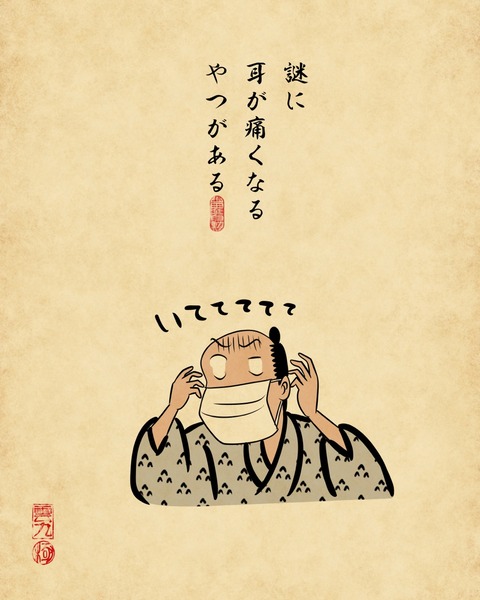 謎に
耳が痛くなる
やつがある
いててててて